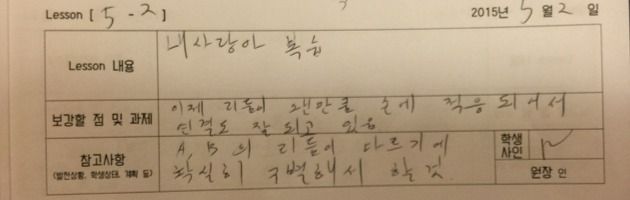 Lesson [ 5 - 2 ] 2015년 5 월 2 일
Lesson 내용 내사랑아 복습
보강할 점 및 과제 이제 리듬이 왠만큼 손에 적응되어서
연결도 잘 되고 있음
참고사항 A, B의 리듬이 다르기에 학생 사인
(발전상황, 학생상태, 계획 등) 확실히 구별해서 할것 원장 인